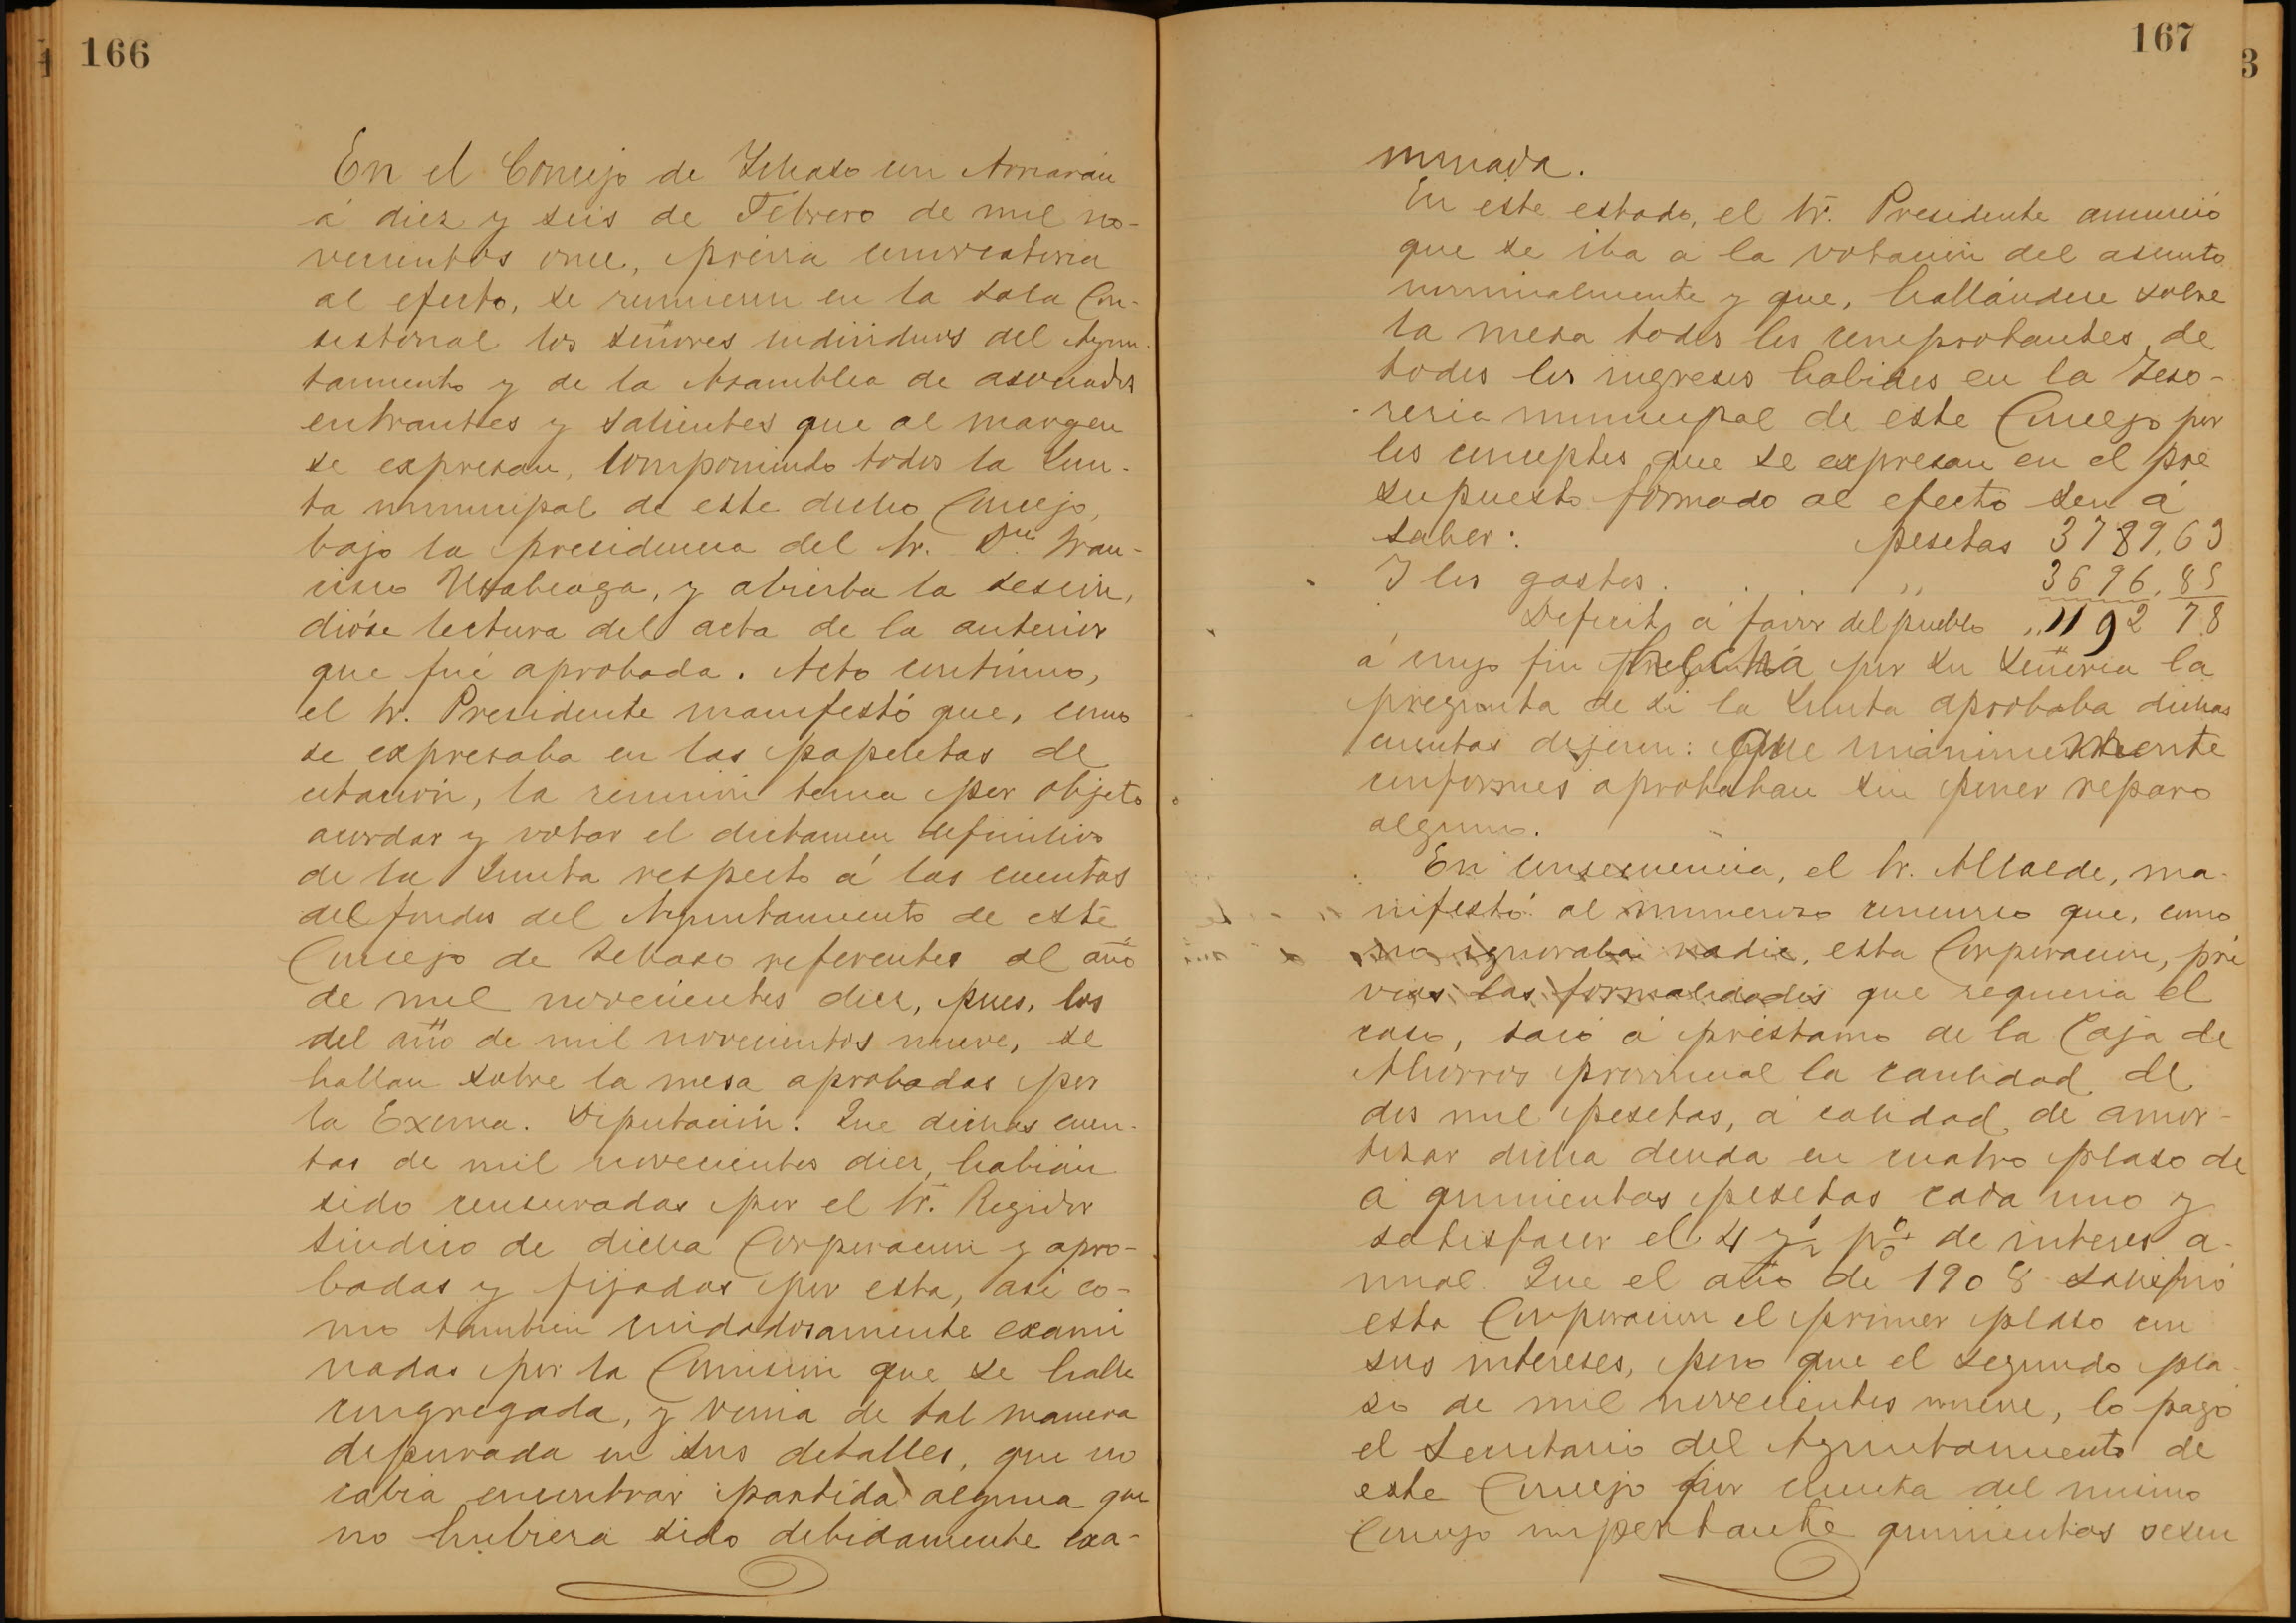 166
En el Concejo de Ichaso en Arriarán
á diez y seis de Febrero de mil no-
vecientos once, prévia convocatoria
al efecto, se reunieron en la Sala Con-
sistorial los señores individuos del Ayun-
tamiento y de la Asamblea de asociados
entrantes y salientes que al margen
se expresan, componiendo todos la Jun-
ta municipal de este dicho Concejo,
bajo la presidencia del Sr. Dn. Fran-
cisco Usabiaga, y abierta la sesión,
dióse lectura del acta de la anterior
que fué aprobada. Acto contínuo,
el Sr. Presidente manifestó que, como
se expresaba en las papeletas de
citación, la reunión tenia por objeto
acordar y votar el dictamen definitivo
de la Junta respecto á las cuentas
del fondos del Ayuntamiento de este
Concejo de Ichaso referentes al año
de mil novecientos diez, pues, los
del año de mil novecientos nueve, se
hallan sobre la mesa aprobadas por
la Exema. Diputación. Que dichas cuen-
tas de mil novecientos diez, habian
sido censuradas por el Sr. Regidor
Síndico de dicha Corporacion y apro-
badas y fijadas por esta, asi co-
mo tambien cuidadosamente exami
nadas por la Comision que se halla
congregada, y venia de tal manera
depurada en sus detalles, que no
cabia encontrar partida alguna que
no hubiera sido debidamente exa-
167
3
minada.
En este estado, el Sr. Presidente anunció
que se iba a la votación del asunto
nominalmente y que, hallándose sobre
la mesa todos los comprobantes de
todos los ingresos habidos en la Teso-
reria municipal de este Concejo por
los conceptos que se expresan en el pre
supuesto formado al efecto son á
saber: pesetas 3789,63
Y los gastos. . " 3696,85
Deficit á favor del pueblo ,,1192 78
á cuyo fin hecha por su Señoria la
pregunta de si la Junta aprobaba dichas
cuentas dijeron: Que unánimemente
conformes aprobaban sin poner reparo
alguno.
En consecuencia, el Sr. Alcalde, ma-
nifestó al numeroso concurso que, como
no ignoraba nadie, esta Corporacion, pré
vias las formalidades que requeria el
caso, sacó á préstamo de la Caja de
Ahorros provincial la cantidad de
dos mil pesetas, á calidad de amor-
tizar dicha deuda en cuatro plaso de
á quinientas pesetas cada uno y
satisfacer el 4 y ½ p% de interes a-
nual. Que el año de 1908 satisfizo
esta Corporacion el primer plaso con
sus intereses, pero que el segundo pla
so de mil novecientos nueve, lo pagó
el Secretario del Ayuntamiento de
este Concejo por cuenta del mismo
Concejo importante quinientas sesen